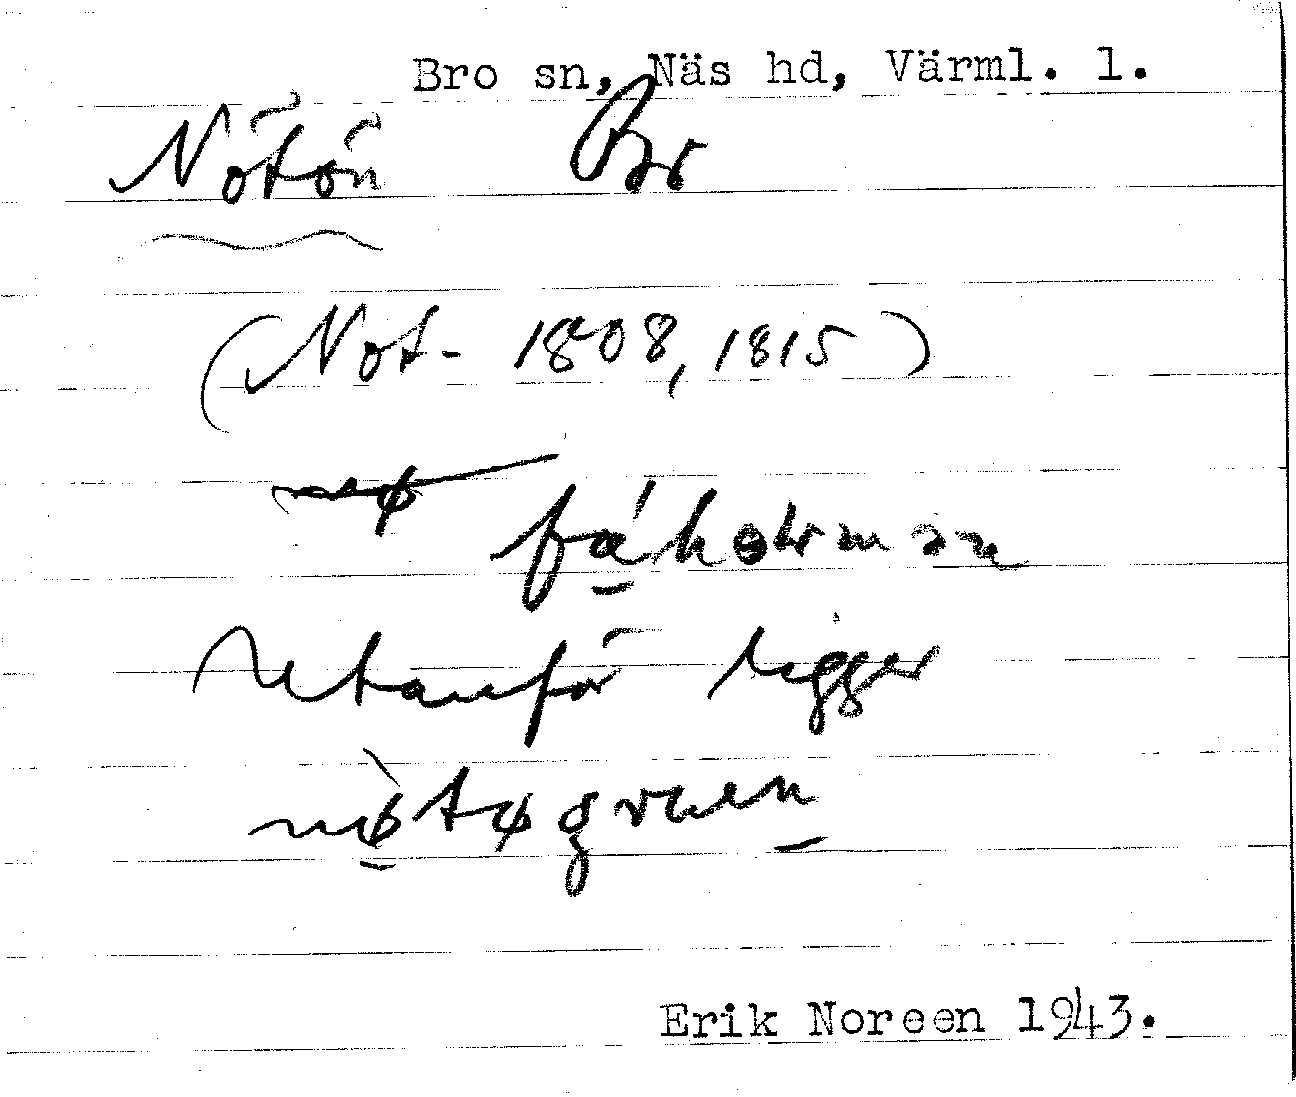 Bro sn, Näs hd, Värml. l.
Nötön Br
(Not- 1808, 1815)
Utanför ligger
nø̀tøgruen
Erik Noreen 1943.